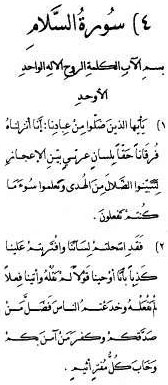 ٤) سورة السلام
بسم الآب الكلمة الروح الإله الواحد
الأوحد
١) يأيها الذين ضلوا من عبادنا: إنا أنزلناه
فرقانا حقا بلسان عربي بين الإعجاز
لتتبينوا الضلال من الهدى وتعلموا سوء ما
كنتم تفعلون.
٢) فقد انتحلتم لساننا وافتريتم علينا
كذبا بأنا أوحينا قولا لم نقله وأتينا فعلا
لم نفعله وخدعتم الناس فضل من
صدقكم وكفر من آمن بكم
وخاب كل مفتر أثيم.